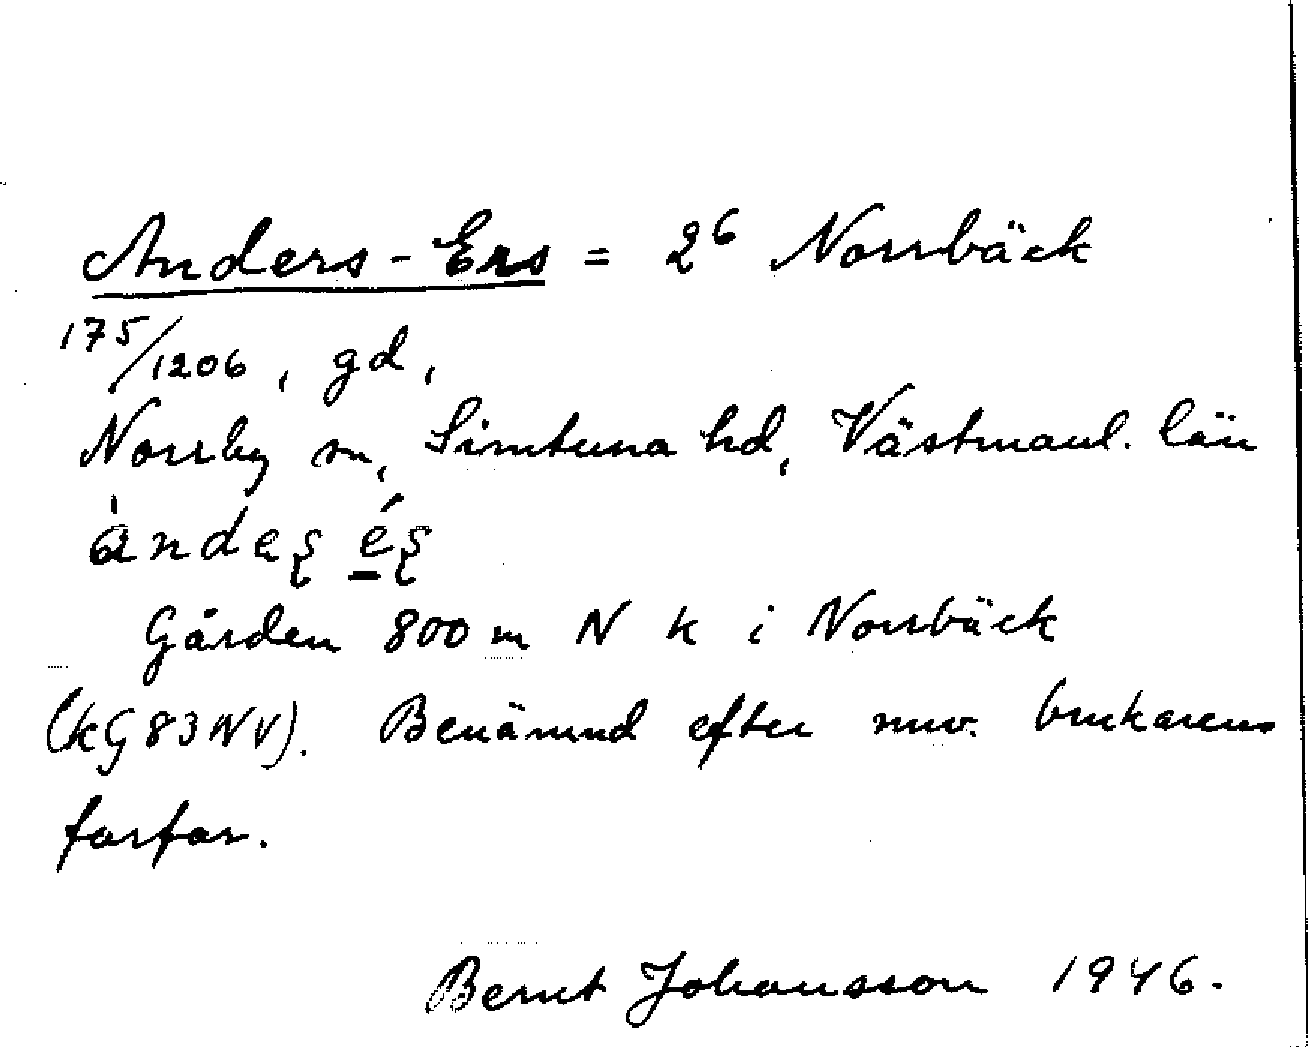 Anders-Ers = 2⁶ Norrbäck
175/1206, gd,
Norrby sn, Simtuna hd, Västmanl. län
ándeʂ é̱ʂ
Gården 800 m N k i Norrbäck
(kG 83 NV). Benämnd efter nuv. brukarens
farfar.
Bernt Johansson 1946.